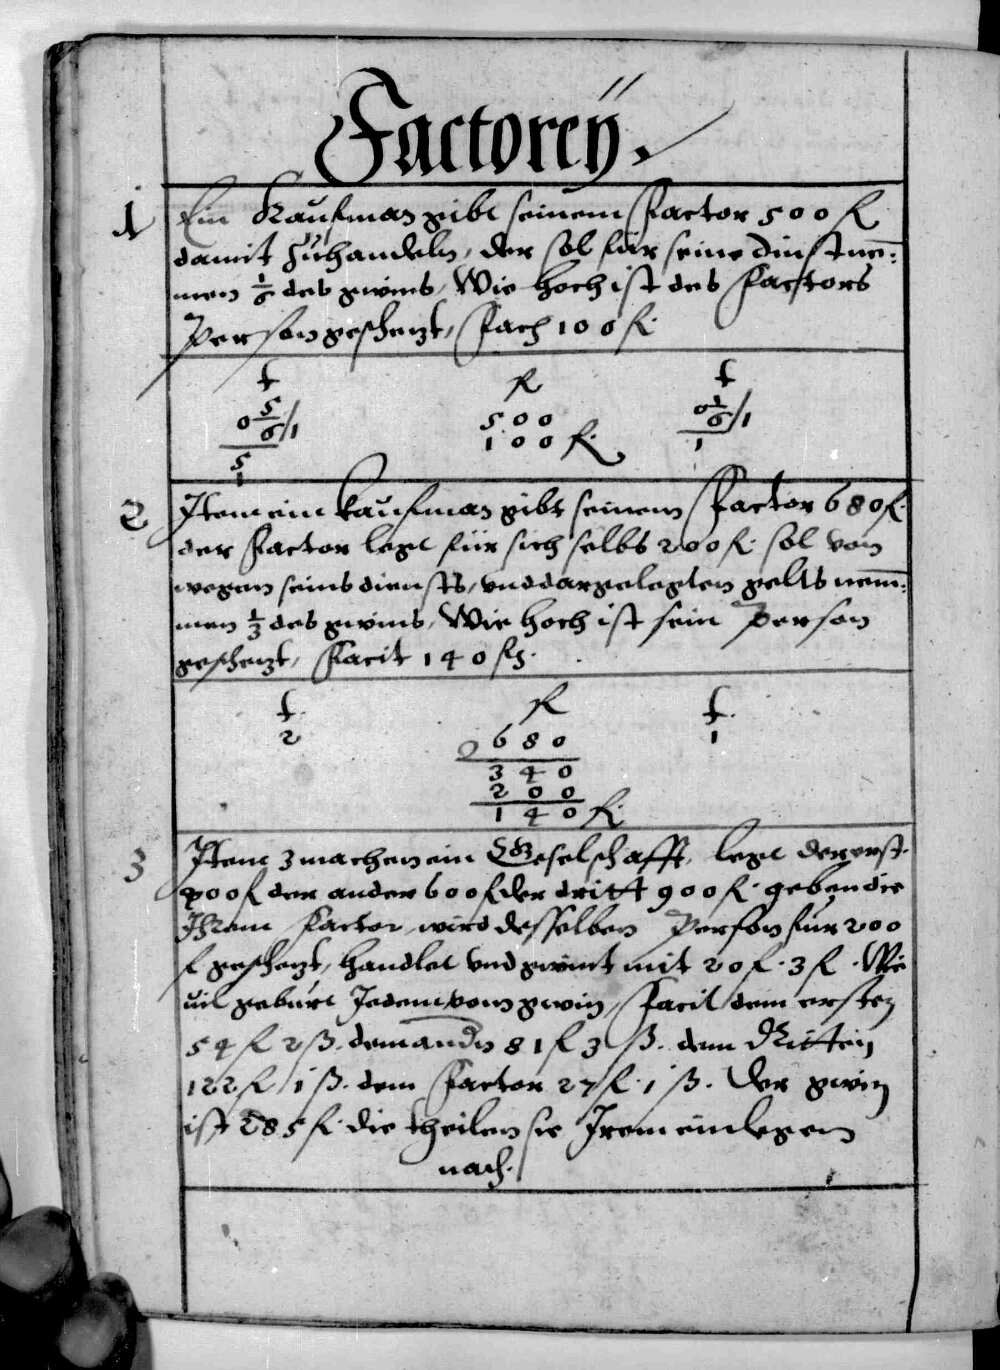 Factoreÿ.
1 Ein Kaufman gibt seinem Factor 500 fl
damit zuhandeln, der sol für seine dinst ne-
men 1/6 des gwins, Wie hoch ist des Factors
Person geschetzt, Facit 100 fl.
t fl t
0 5/6 /1 500 0 1/6 /1
5 100 fl. 1
1
2 Item ein kaufman gibt seinem Factor 680 fl.
der Factor legt für sich selbs 200 fl. sol von
wegen seins diensts, vnd dargelegten gelts nem-
men 1/3 des gwins, Wie hoch ist sein Person
geschetzt, Facit 140 fl.
t. fl t.
2 680 1
2
340
200
140 fl.
3 Item 3 machen ein Geselschafft, legt der erst
400 fl der ander 600 fl der dritt 900 fl. geben die
Ihrem Factor, wird desselben Person für 200
fl geschetzt, handlet vnd gwint mit 20 fl. 3 fl. Wie
uil gebürt Jedem vom gwin, Facit dem ersten
54 fl 2 ß. dem andern 81 fl 3 ß. dem Dritten
122 fl 1 ß. dem Factor 27 fl. 1 ß. Der gwin
ist 285 fl. die theilen sie Irem einlegen
nach.